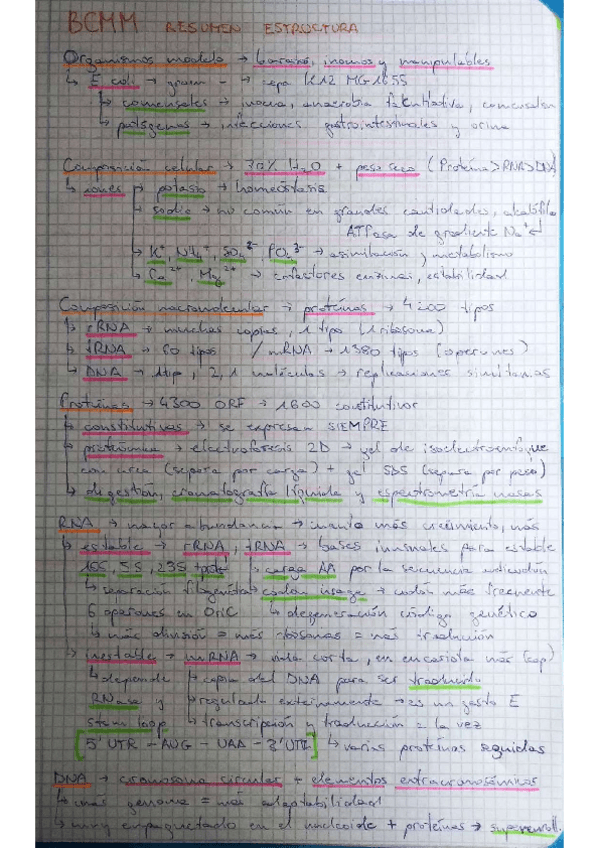 BCMM RESUMEN ESTRUCTURA
Organismos modelo → baratos, inocuos y manipulables
↳ E coli → gram - → cepa K12 MG1655
↳ comensales → inocua, anaerobia facultativa, comensal
↳ patógenos → infecciones gastrointestinales y orina
Composición celular → 70% H2O + peso seco (Proteína > RNA > DNA)
↳ iones → potasio → homeóstasis
↳ sodio → no común en grandes cantidades,
ATPasa de gradiente Na+
↳ K+, NH4+, SO4 2-, PO4 3- → asimilación y metabolismo
↳ Ca2+, Mg2+ → cofactores enzimas, estabilidad
Composición macromolecular → proteínas → 4200 tipos
↳ rRNA → muchas copias, 1 tipo (1 ribosoma)
↳ tRNA → 60 tipos / mRNA → 1380 tipos (operones)
↳ DNA → 1 tipo, 2,1 moléculas → replicaciones simultáneas
Proteínas → 4300 ORF → 1600 constitutivos
↳ constitutivas → se expresan SIEMPRE
↳ proteómica → electroforesis 2D → gel de isoelectroenfoque
con urea (separa por carga) + gel SDS (separa por peso)
↳ digestión, cromatografía líquida y espectrometría masas
RNA → mayor abundancia → cuanto más crecimiento, más
↳ estable → rRNA, tRNA → bases inusuales para estable
16S, 5S, 23S + prot ↳ carga AA por la secuencia anticodón
↳ separación ↳ codon usage → codón más frecuente
6 operones en OriC ↳ degeneración código genético
↳ más división = más ribosomas = más traducción
↳ inestable → mRNA → vida corta, en eucariota más (cap)
↳ depende ↳ copia del DNA para ser traducido
RNasa y ↳ regulado externamente → es un gasto E
stem loop ↳ transcripción y traducción a la vez
[5' UTR - AUG - UAA - 3' UTR] ↳ varias proteínas seguidas
DNA → cromosoma circular + elementos extracromosómicos
↳ más genoma = más adaptabilidad
↳ muy empaquetado en el nucleoide + proteínas → supercoil.